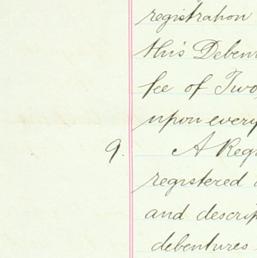 registration
this Deben
fee of Two
upon every
9. A Reg
registered
and descrip
debentures